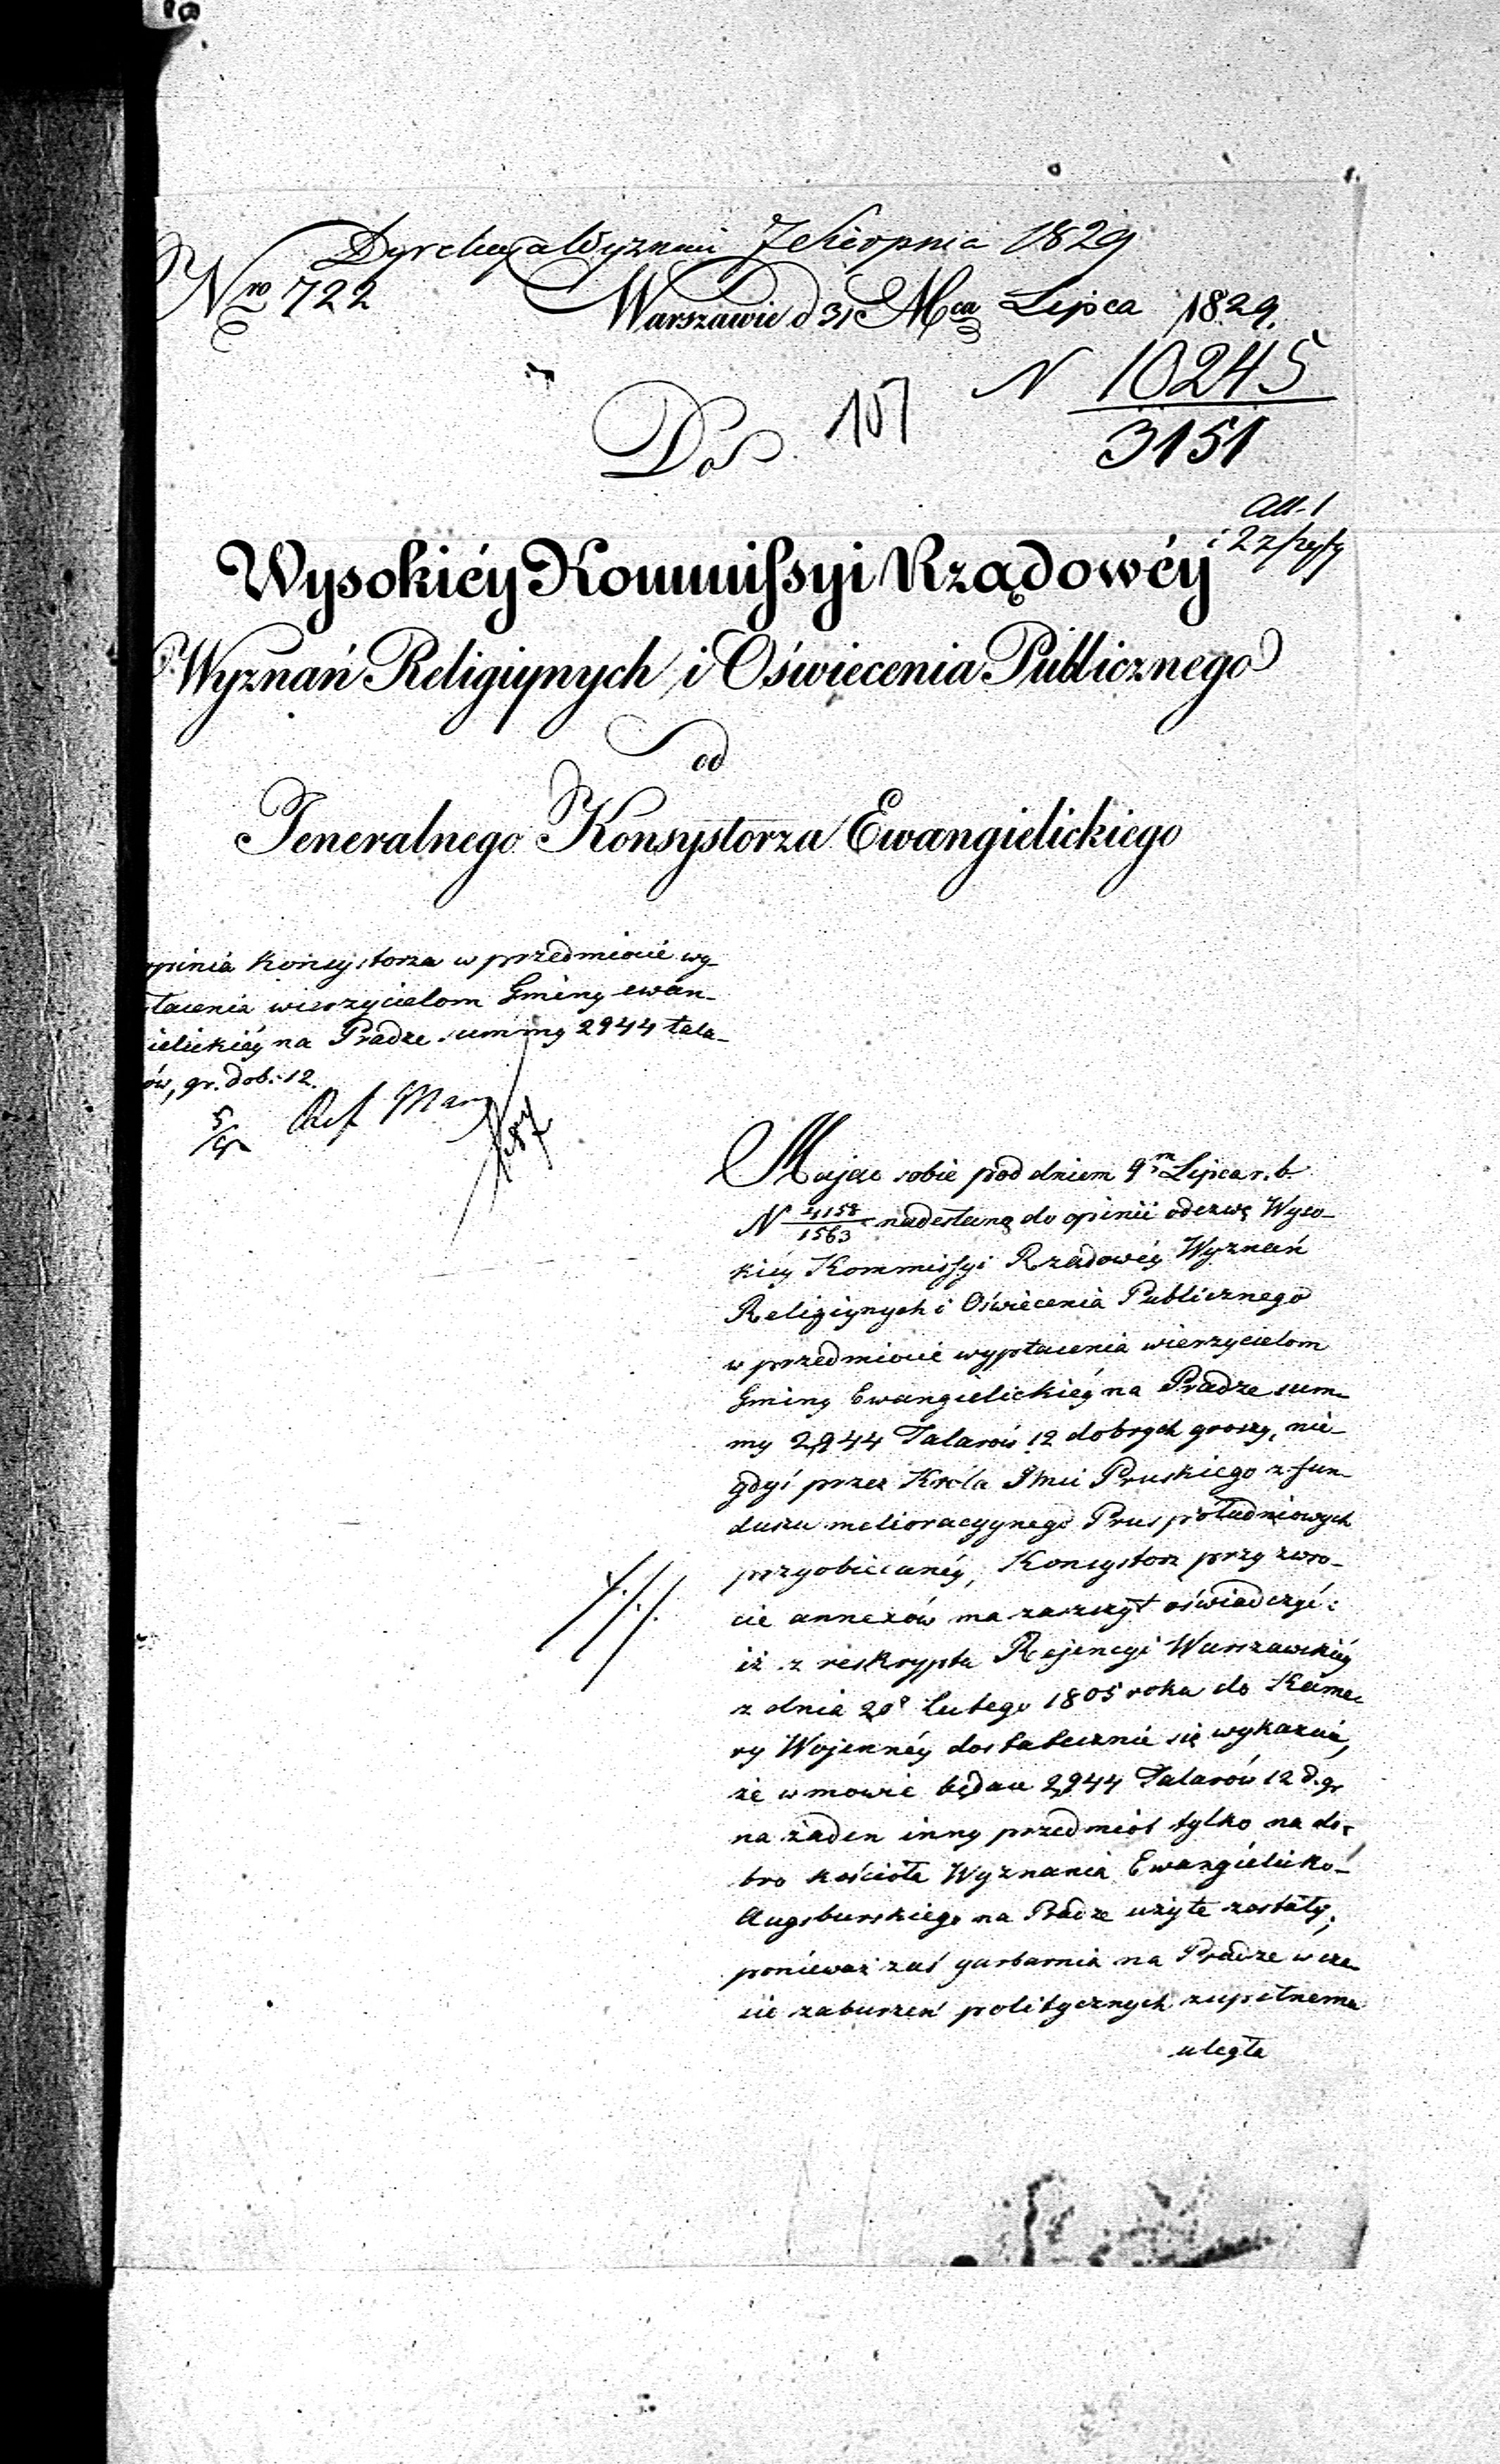 Dyrekcya Wyznań 7 Sierpnia 1829
Nro 722
Warszawie d 31 Mca Lipca 1829.
N 10245
3151
Do
107
All. 1
i 2
Wysokiéy Kommissyi Rządowéy
Wyznań Religiynych i Oświecenia Publicznego
od
Jeneralnego Konsystorza Ewangielickiego
opinia Konsystorza w przedmiocie wy-
płacenia wierzycielom Gminy ewan-
ielickiéy na Pradze summy 2944 tala-
ów, gr. dob. 12.
5/
Ref
Mając sobie pod dniem 9m Lipca r. b.
N 4158/1563 nadesłaną do opinii odezwę Wyso-
kiéy Kommissyi Rządowéy Wyznań
Religiynych i Oświecenia Publicznego
w przedmiocie wypłacenia wierzycielom
Gminy Ewangielickiéy na Pradze sum-
my 2,944 Talarów 12 dobrych groszy, nie-
gdyś przez Króla Jmci Pruskiego z fun-
duszu melioracyynego Prus południowych
przyobiecanéy, Konsystorz przy zwro-
cie annexów ma zaszczyt oświadczyć:
iż z reskryptu Rejencyi Warszawskiéy
z dnia 20 Lutego 1805 roku do Kame-
ry Wojennéy dostatecznie się wykazuie,
że w mowie będące 2,944 Talarów 12 d. gr
na żaden inny przedmiot tylko na do-
bro kościoła Wyznania Ewangielicko-
Augsburskiego na Pradze użyte zostały,
ponieważ zaś garbarnia na Pradze w cza-
sie zaburzeń politycznych zupełnemu
uległa